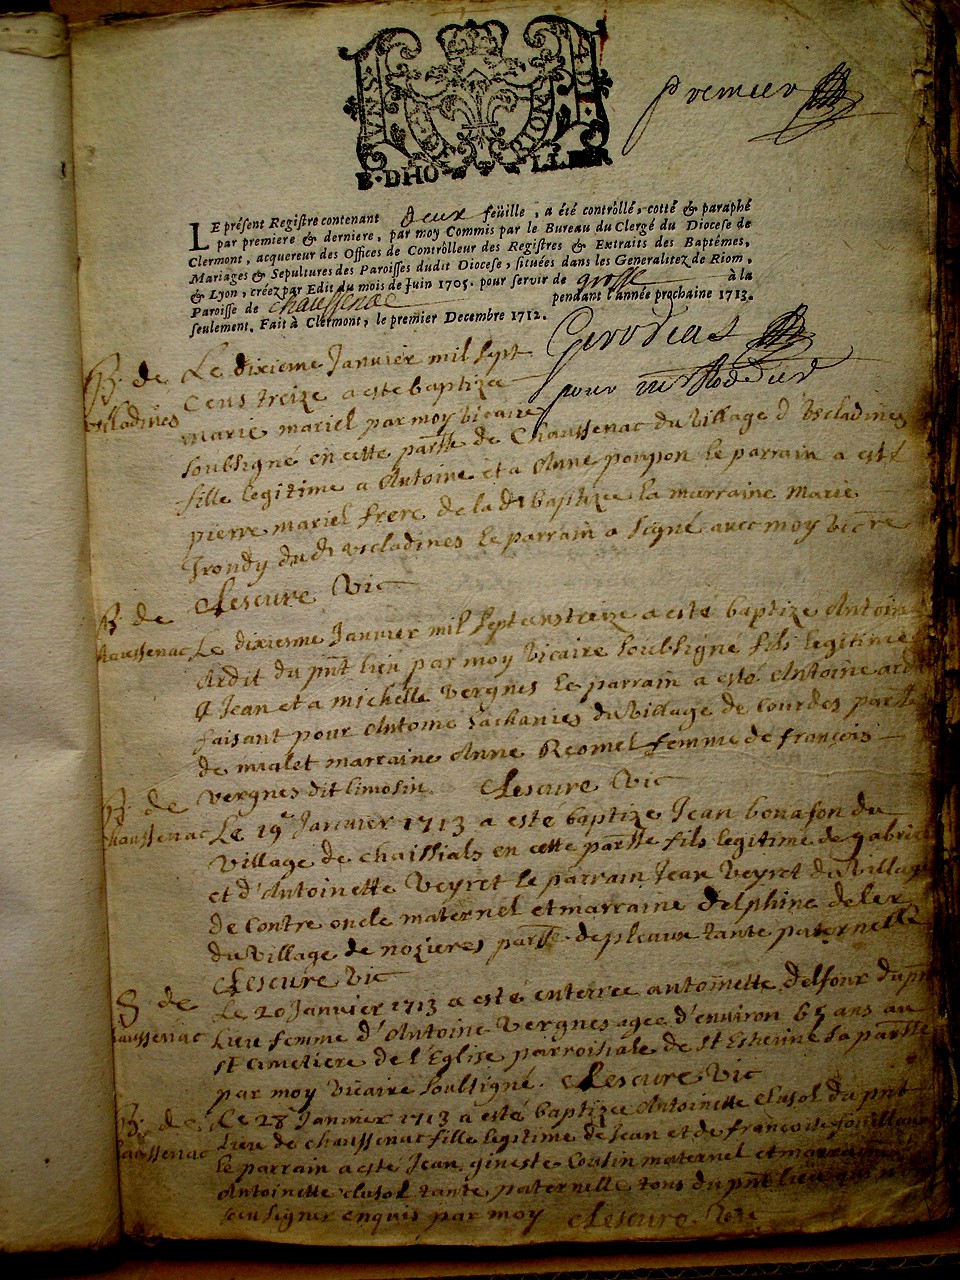 premier
LE présent Registre contenant deux feüille, a été contrôllé, cotté & paraphé
par premiere & derniere, par moy Commis par le Bureau du Clergé du Diocese de
Clermont, acquereur des Offices de Contrôlleur des Registres & Extraits des Baptêmes,
Mariages & Sepultures des Paroisses dudit Diocese, situées dans les Generalitez de Riom,
& Lyon, créez par Edit du mois de Juin 1705. pour servir de grosse à la
Paroisse de chaussenac pendant l'année prochaine 1713.
seulement. Fait à Clermont, le premier Decembre 1712.
Gerodias
pour mr
B. de
Le dixieme Janvier mil sept
Cens treize a este baptizee
marie mariel par moy vicaire
soubsigné en cette parsse de Chaussenac du village d'Escladines
fille legitime a Antoine et a Anne poupon le parrain a esté
pierre mariel frere de la de baptizee la marraine marie
Irondy du dt Escladines le parrain a signé avec moy vicre
Lescure vic
B de
chaussenac
Le dixieme Janvier mil sept cens treize a esté baptize Antoine
Ardit du pnt lieu par moy vicaire soubsigné fils legitime
a Jean et a michelle vergnes le parrain a esté Antoine
faisant pour Antoine Lachanies du village de Courdes parsse
de mialet marraine Anne Reomel femme de françois
vergnes dit limosin. Lescure vic
B. de
chaussenac
Le 19e Janvier 1713 a esté baptize Jean bonafon du
village de chaissials en cette parsse fils legitime de gabriel
et d'Antoinette Veyret le parrain Jean Veyret du village
de Contre oncle maternel et marraine delphine deler
du village de nozieres parsse de pleaux tante paternelle
Lescure vic
S de
chaussenac
Le 20 Janvier 1713 a esté enterree antoinette delfour du pnt
Lieu femme d'Antoine Vergnes agee d'environ 65 ans au
st Cimetiere de l'Eglise parroisiale de st Estienne la parsse
par moy vicaire soulsigné. Lescure vic
B. de
chaussenac
Le 28e Janvier 1713 a esté baptizee Antoinette Clusol du pnt
Lieu de chaussenac fille legitime de Jean et de françoise
le parrain a esté Jean gineste Cousin maternel et marraine
Antoinette clusol tante paternelle tous du pnt lieu qui
signer enquis par moy Lescure